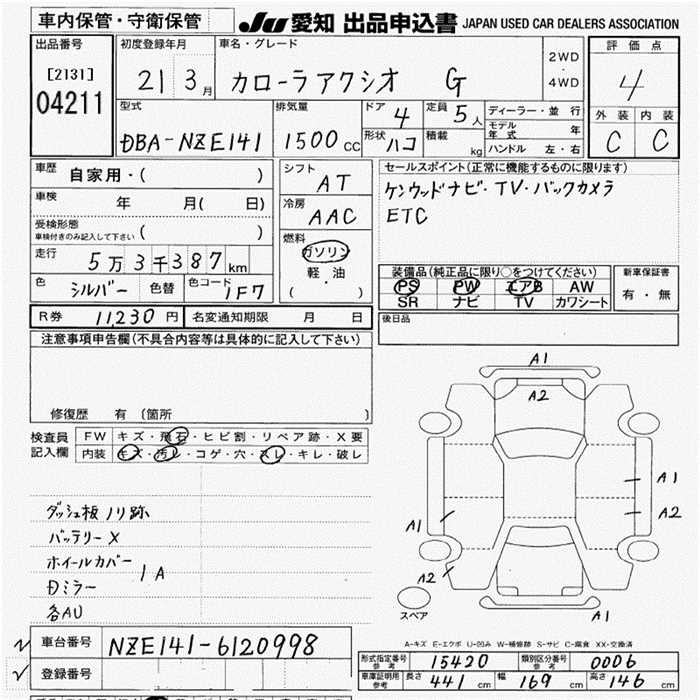 車内保管・守衛保管
JU 愛知 出品申込書 JAPAN USED CAR DEALERS ASSOCIATION
出品番号
[2131]
04211
初度登録年月
21 3月
車名・グレード
カローラアクシオ G
2WD
・
4WD
評価点
4
外装 内装
C C
型式
DBA-NZE141
排気量
1500cc
ドア 4
形状 ハコ
定員 5人
積載 kg
ディーラー・並行
モデル年式 年
ハンドル 左・右
車歴
自家用・( )
車検
年 月( 日)
受検形態
車検付きのみ記入して下さい ( )
走行
5万3千387km
色 シルバー 色替 色コード 1F7
シフト
AT
冷房
AAC
燃料
ガソリン
軽・油
( ・ )
セールスポイント(正常に機能するものに限ります)
ケンウッドナビ・TV・バックカメラ
ETC
装備品(純正品に限り○をつけてください)
PS PW エアB AW
SR ナビ TV カワシート
新車保証書
有・無
R券 11,230円 名変通知期限 月 日
後日品
注意事項申告欄(不具合内容等は具体的に記入して下さい)
修復歴 有 (箇所 )
検査員
記入欄
FW キズ・飛石・ヒビ割・リペア跡・X要
内装 キズ・汚レ・コゲ・穴・スレ・キレ・破レ
ダッシュ板ノリ跡
バッテリーX
ホイールカバー
1A
Dミラー
各AU
A1
A2
A1
A2
A1
A2
A1
スペア
A-キズ E-エクボ U-凹み W-補修跡 S-サビ C-腐食 XX-交換済
車台番号 NZE141-6120998
登録番号
形式指定番号
参考
15420
類別区分番号
参考
0006
車庫証明用
参考
長さ 441cm 幅 169cm 高さ 146cm